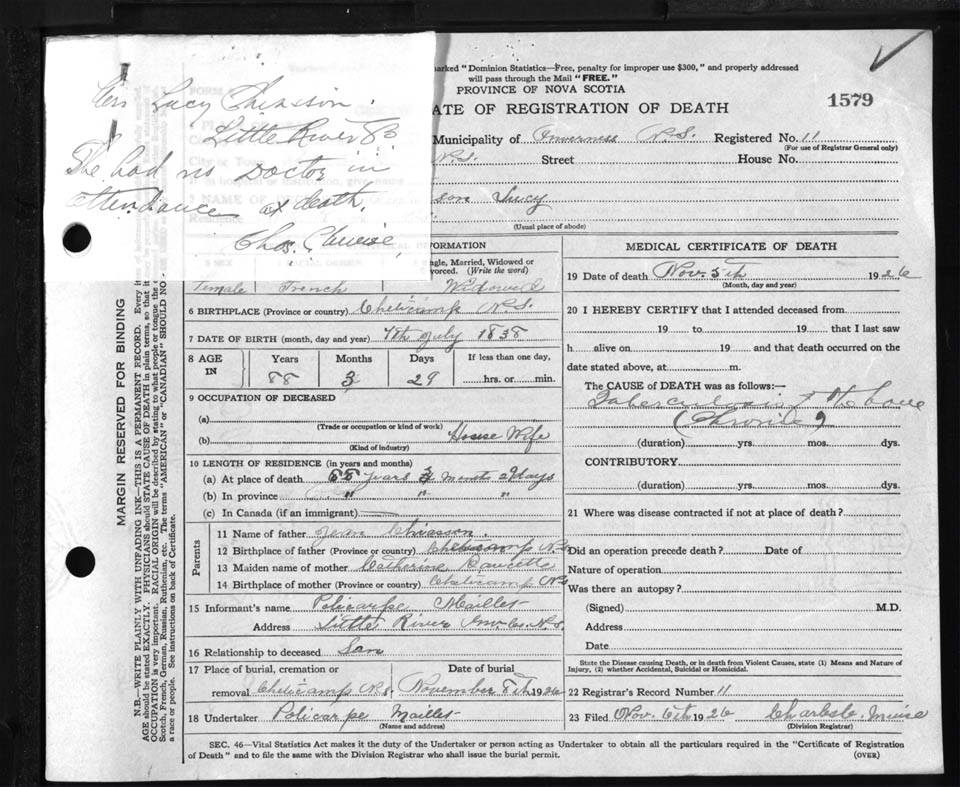 Lucy Chiasson.
Little River 83
She had no Doctor in
attendance at death.
Chas. Muise,
marked "Dominion Statistics—Free, penalty for improper use $300," and properly addressed
will pass through the Mail "FREE."
PROVINCE OF NOVA SCOTIA
ATE OF REGISTRATION OF DEATH
1579
Municipality of Inverness N.S. Registered No. 11
(For use of Registrar General only)
N.S. Street House No.
son Lucy
(Usual place of abode)
MARGIN RESERVED FOR BINDING
N.B.—WRITE PLAINLY WITH UNFADING INK—THIS IS A PERMANENT RECORD. Every
AGE should be stated EXACTLY. PHYSICIANS should STATE CAUSE OF DEATH in plain terms, so that it
OCCUPATION is very important. RACIAL ORIGIN will be described by stating to what people or tongue the
Scotch, French, German, Russian, Ruthenian, etc. The terms "AMERICAN" or "CANADIAN" SHOULD NO
a race or people. See instructions on back of Certificate.
INFORMATION
ngle, Married, Widowed or
vorced. (Write the word)
Female French Widowed
6 BIRTHPLACE (Province or country) Cheticamp N.S.
7 DATE OF BIRTH (month, day and year) 7th July 1838
8 AGE IN Years Months Days If less than one day,
88 3 29 hrs. or min.
9 OCCUPATION OF DECEASED
(a)
(Trade or occupation or kind of work)
(b) House Wife
(Kind of industry)
10 LENGTH OF RESIDENCE (in years and months)
(a) At place of death 88 years 3 months days
(b) In province " " "
(c) In Canada (if an immigrant)
Parents
11 Name of father Jean Chiasson.
12 Birthplace of father (Province or country) Cheticamp N.S.
13 Maiden name of mother Catherine
14 Birthplace of mother (Province or country) Cheticamp N.S.
15 Informant's name Policarpe Maillet
Address Little River Inv. Co. N.S.
16 Relationship to deceased Son
17 Place of burial, cremation or Date of burial
removal Cheticamp N.S. November 8th 1926
18 Undertaker Policarpe Maillet
(Name and address)
MEDICAL CERTIFICATE OF DEATH
19 Date of death Nov. 5th 1926
(Month, day and year)
20 I HEREBY CERTIFY that I attended deceased from
19 to 19 that I last saw
h alive on 19 and that death occurred on the
date stated above, at m.
The CAUSE of DEATH was as follows:—
Tuberculosis of the bone
(Chronic)
(duration) yrs. mos. dys.
CONTRIBUTORY
(duration) yrs. mos. dys.
21 Where was disease contracted if not at place of death?
Did an operation precede death? Date of
Nature of operation
Was there an autopsy?
(Signed) M.D.
Address
Date
State the Disease causing Death, or in death from Violent Causes, state (1) Means and Nature of
Injury, (2) whether Accidental, Suicidal or Homicidal.
22 Registrar's Record Number 11
23 Filed Nov. 6th 1926 Charles Muise
(Division Registrar)
SEC. 46—Vital Statistics Act makes it the duty of the Undertaker or person acting as Undertaker to obtain all the particulars required in the "Certificate of Registration
of Death" and to file the same with the Division Registrar who shall issue the burial permit. (OVER)